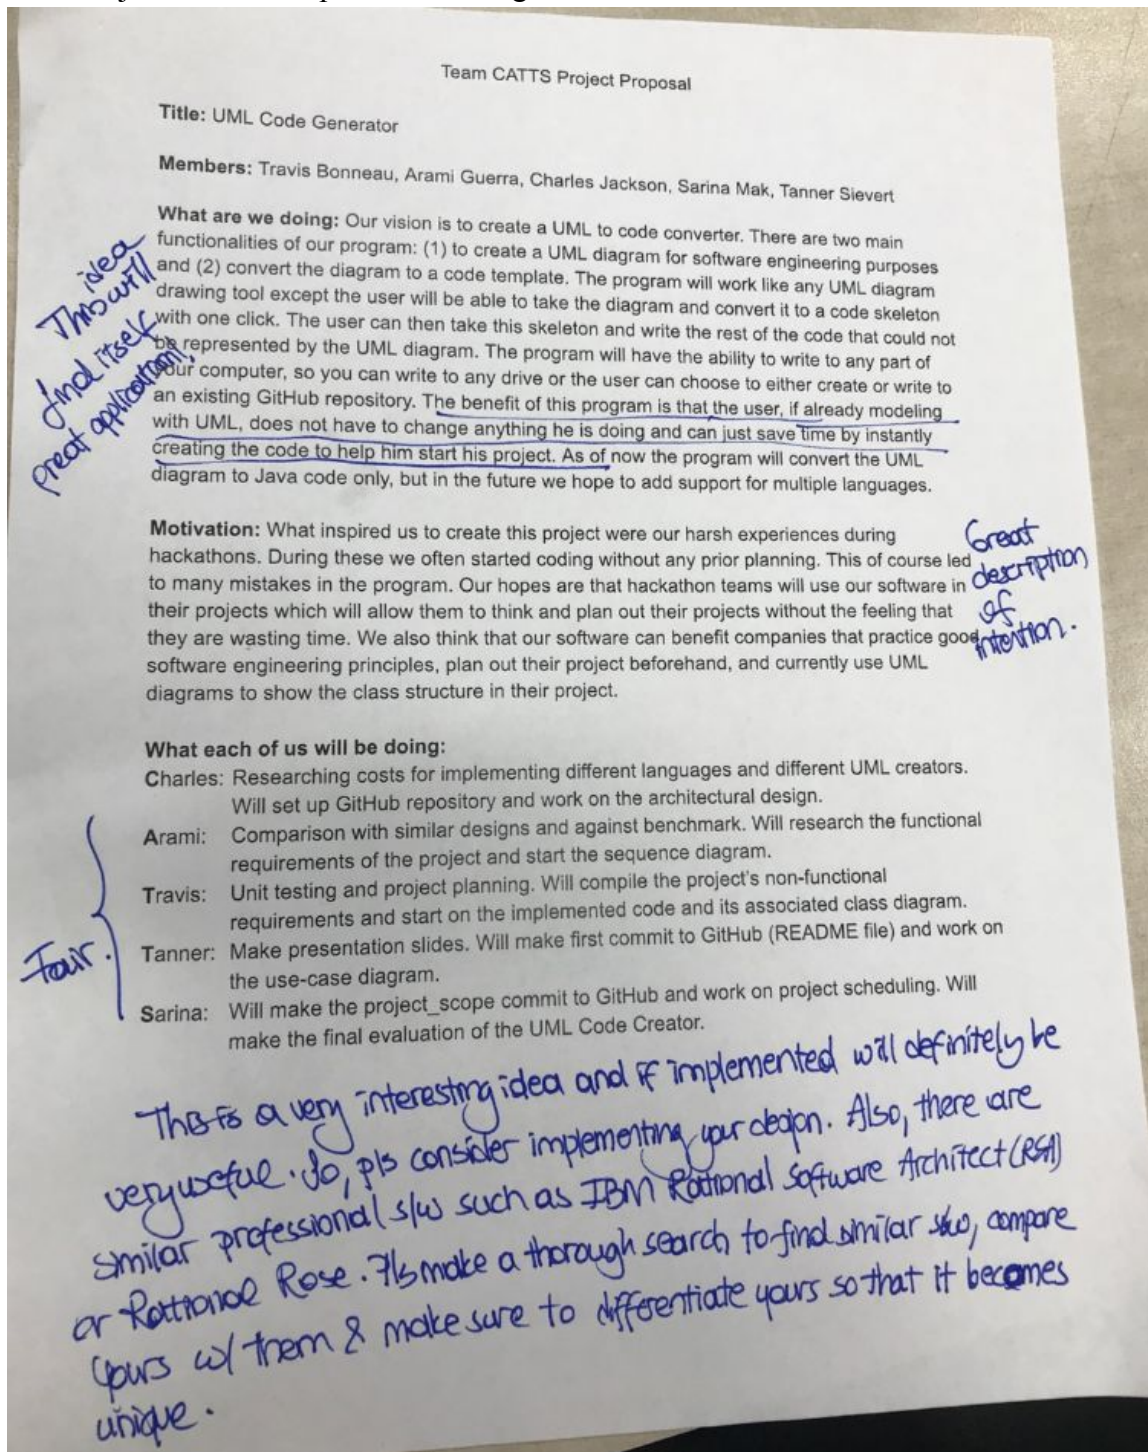 Team CATTS Project Proposal
Title: UML Code Generator
Members: Travis Bonneau, Arami Guerra, Charles Jackson, Sarina Mak, Tanner Sievert
What are we doing: Our vision is to create a UML to code converter. There are two main
functionalities of our program: (1) to create a UML diagram for software engineering purposes
and (2) convert the diagram to a code template. The program will work like any UML diagram
drawing tool except the user will be able to take the diagram and convert it to a code skeleton
with one click. The user can then take this skeleton and write the rest of the code that could not
be represented by the UML diagram. The program will have the ability to write to any part of
your computer, so you can write to any drive or the user can choose to either create or write to
an existing GitHub repository. The benefit of this program is that the user, if already modeling
with UML, does not have to change anything he is doing and can just save time by instantly
creating the code to help him start his project. As of now the program will convert the UML
diagram to Java code only, but in the future we hope to add support for multiple languages.
idea
This will
find itself
great application!
Motivation: What inspired us to create this project were our harsh experiences during
hackathons. During these we often started coding without any prior planning. This of course led
to many mistakes in the program. Our hopes are that hackathon teams will use our software in
their projects which will allow them to think and plan out their projects without the feeling that
they are wasting time. We also think that our software can benefit companies that practice good
software engineering principles, plan out their project beforehand, and currently use UML
diagrams to show the class structure in their project.
Great
description
of
intention.
What each of us will be doing:
Charles: Researching costs for implementing different languages and different UML creators.
Will set up GitHub repository and work on the architectural design.
Arami: Comparison with similar designs and against benchmark. Will research the functional
requirements of the project and start the sequence diagram.
Travis: Unit testing and project planning. Will compile the project's non-functional
requirements and start on the implemented code and its associated class diagram.
Tanner: Make presentation slides. Will make first commit to GitHub (README file) and work on
the use-case diagram.
Sarina: Will make the project_scope commit to GitHub and work on project scheduling. Will
make the final evaluation of the UML Code Creator.
Fair.
This is a very interesting idea and if implemented will definitely be
very useful. So, pls consider implementing your design. Also, there are
similar professional s/w such as IBM Rational Software Architect (RSA)
or Rational Rose. Pls make a thorough search to find similar s/w, compare
yours w/ them & make sure to differentiate yours so that it becomes
unique.